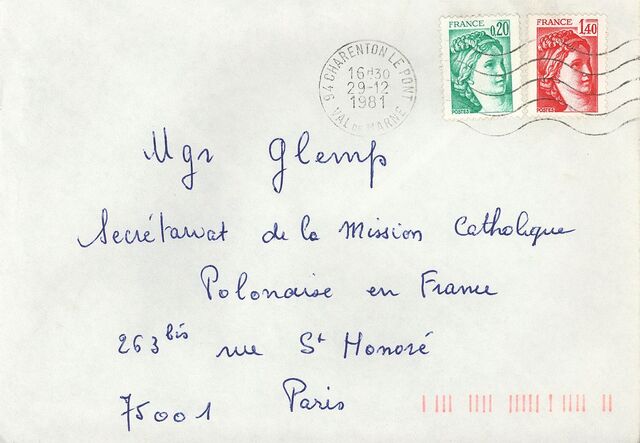 FRANCE
0,20
POSTES
FRANCE
1,40
POSTES
94 CHARENTON LE PONT
16H30
29-12
1981
VAL DE MARNE
Mgr Glemp
Secrétariat de la Mission Catholique
Polonaise en France
263 bis rue St Honoré
75001 Paris